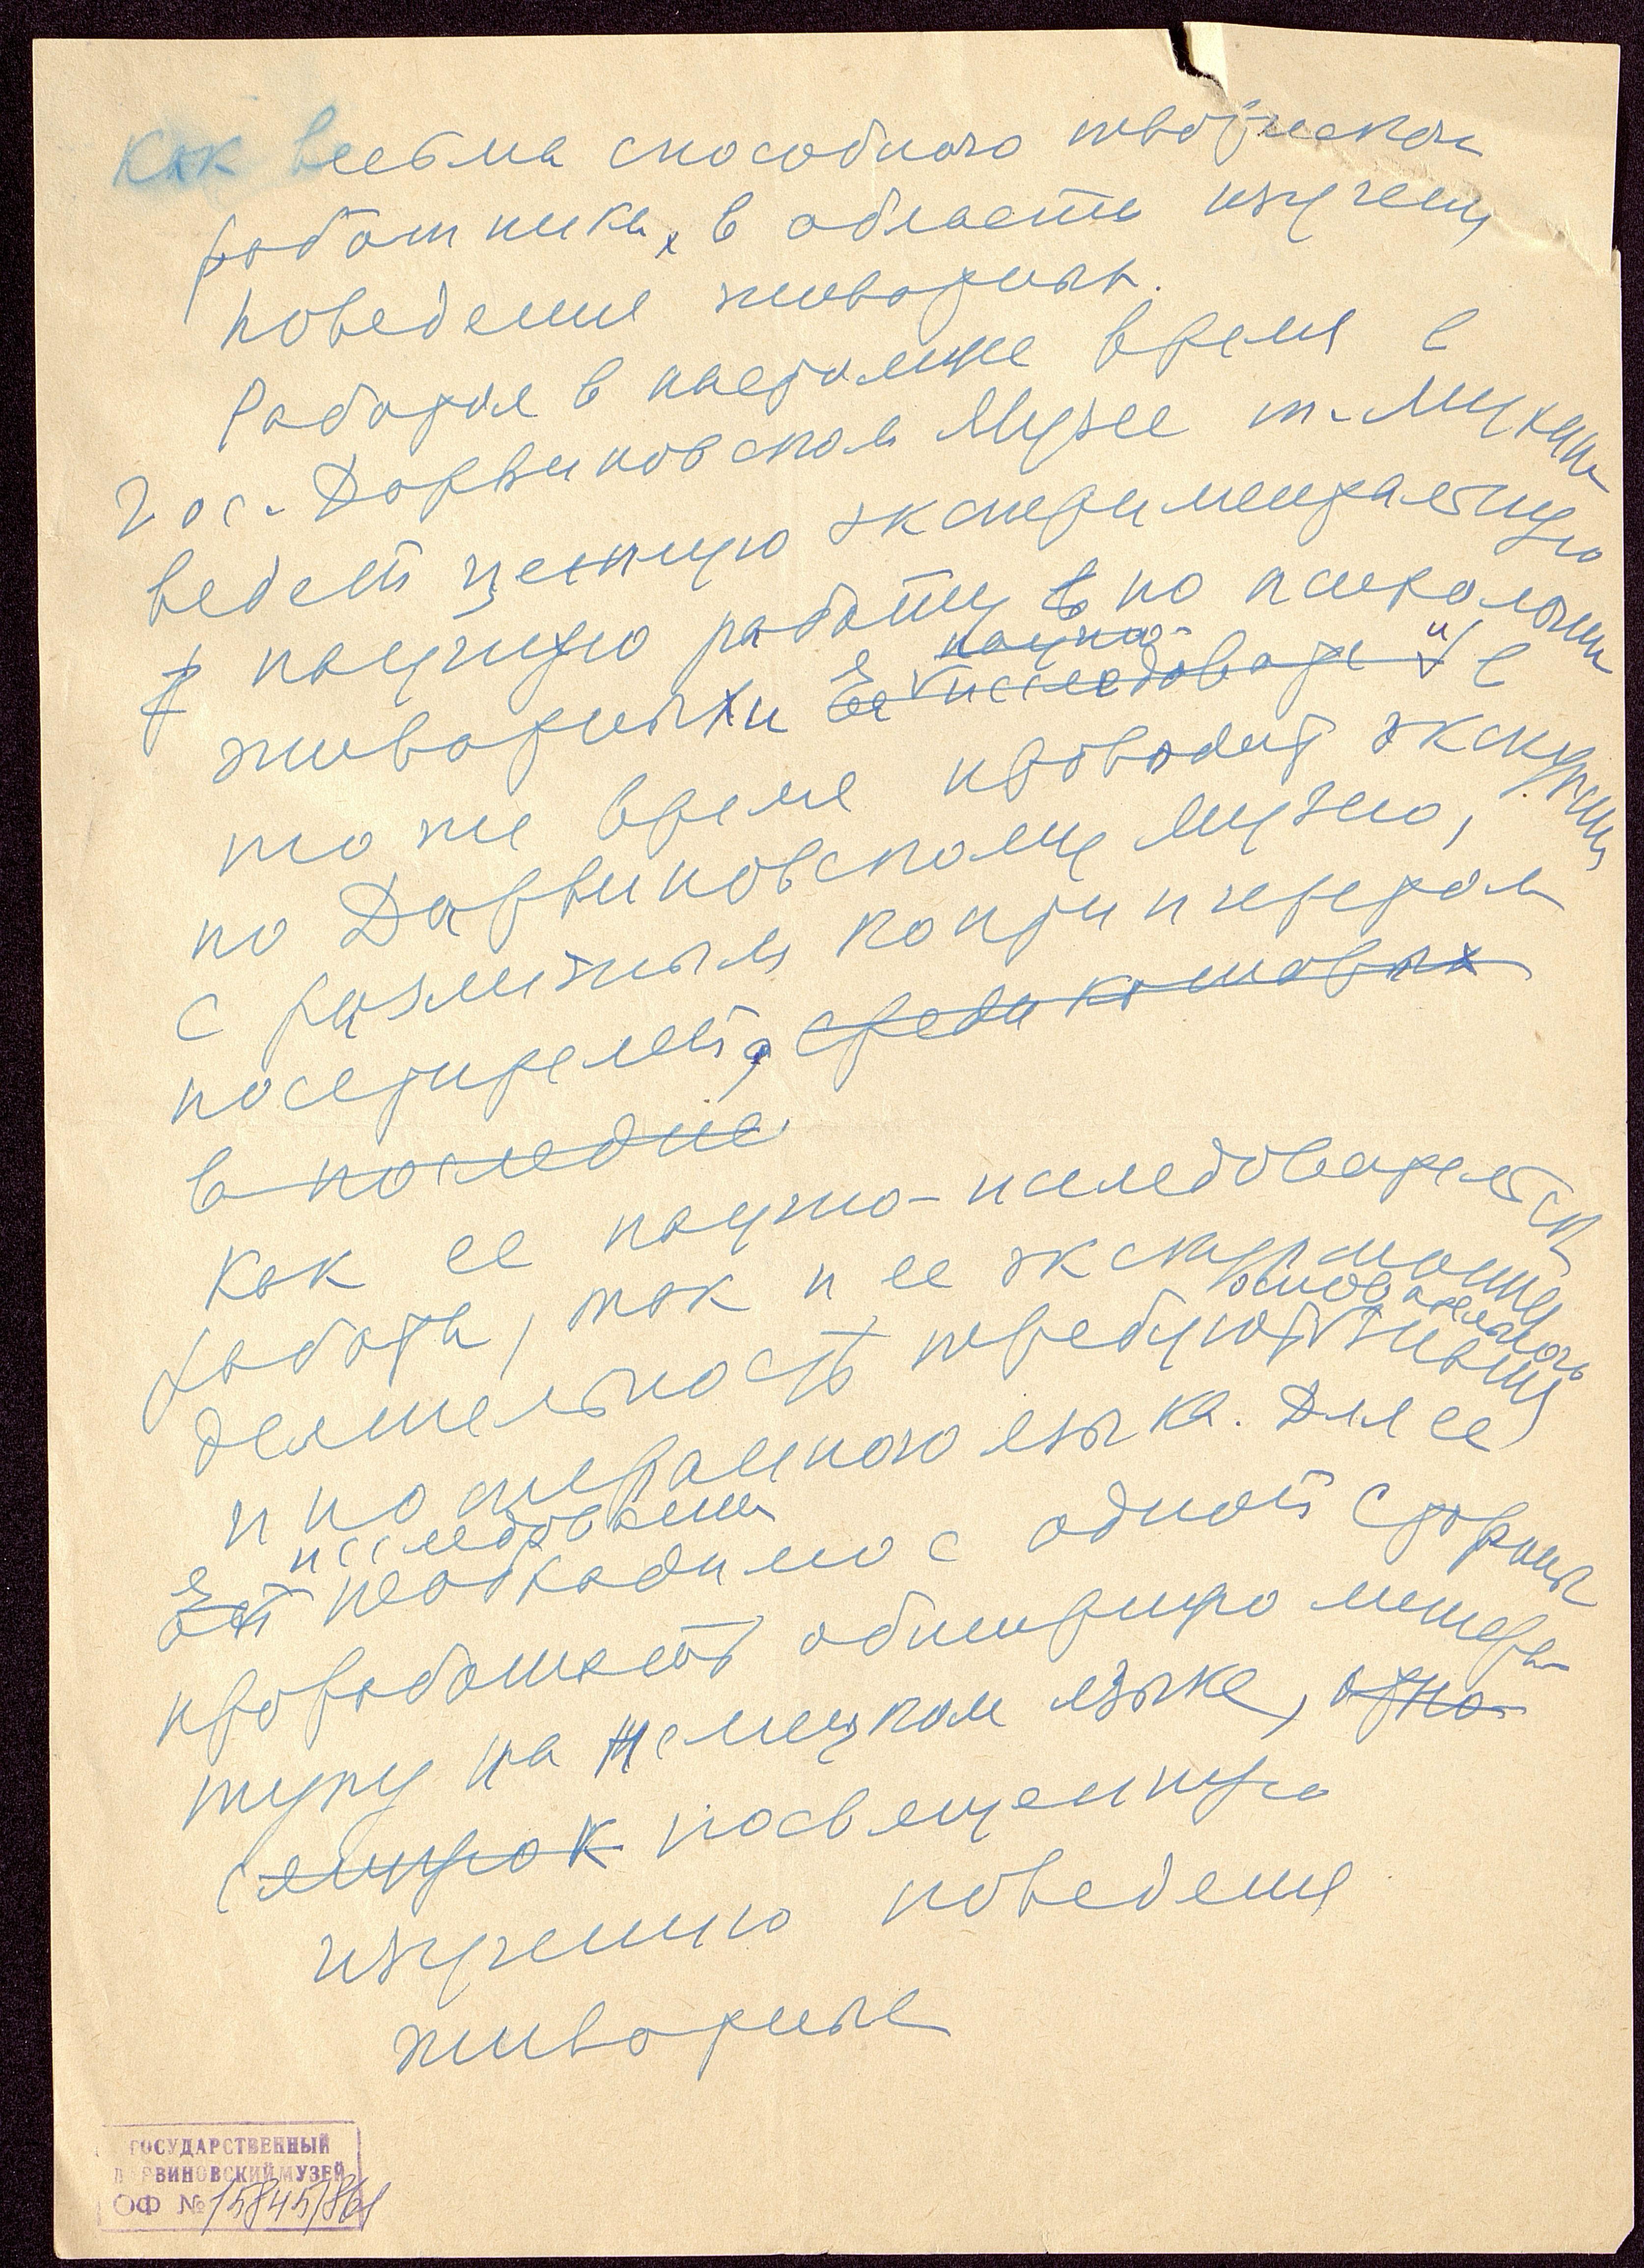 Как весьма способного творческого
работника, в области изучения
поведения животных.
Работая в настоящее время в
Гос. Дарвиновском Музее т.
ведет ценную экспериментальную
научную работу в по психологии
научно-
животных и Ее исследоват и в
то же время проводит экскурсии
по Дарвиновскому музею,
с различным контингентом
посетителей, среди которых
в последние
Как ее научно-исследовательск
работа, так и ее экскурсионная
основательного
деятельность требуют знания
иностранного языка. Для ее
исследования
Ей необходимо с одной стороны
проработать обширную литера-
туру на немецком языке,
посвященную
изучению поведения
животных
ГОСУДАРСТВЕННЫЙ
ДАРВИНОВСКИЙ МУЗЕЙ
ОФ № 15845/861